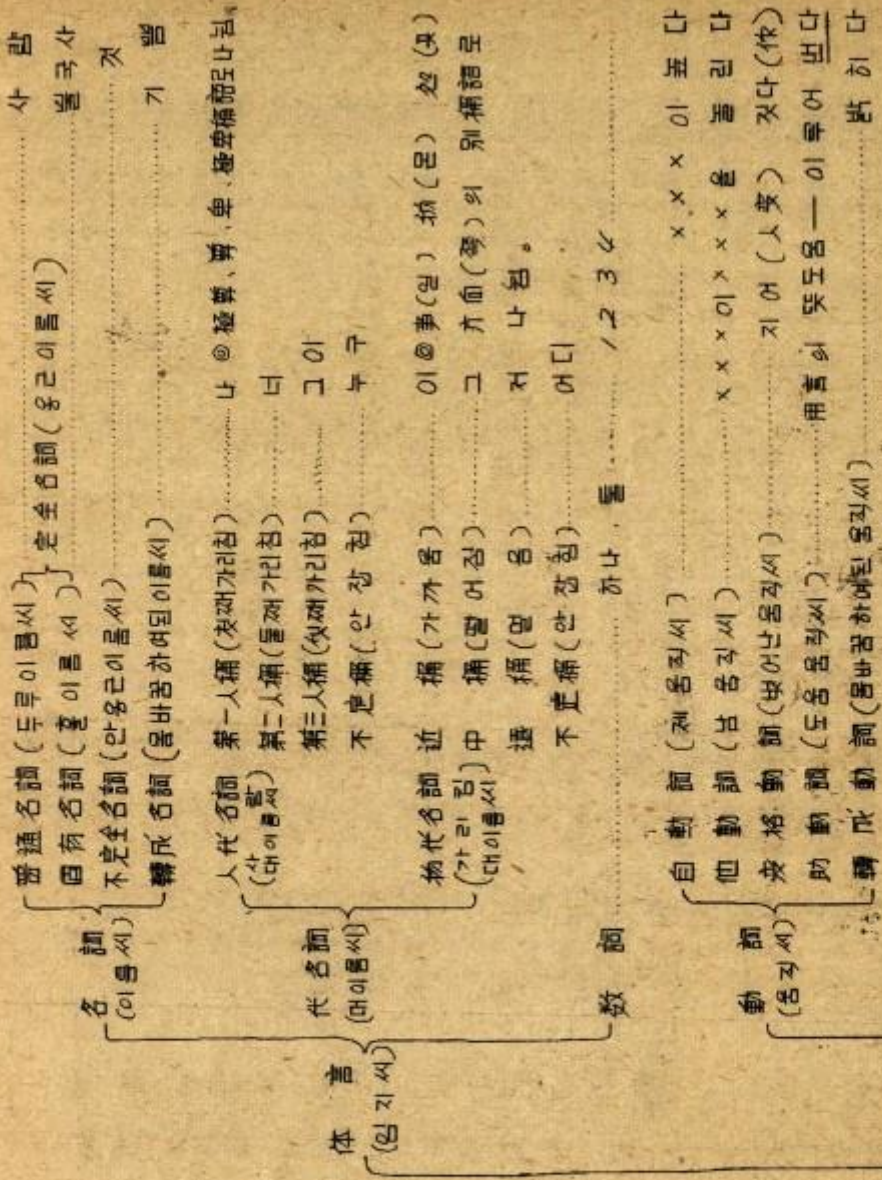 体言 (임자씨)
名詞 (이름씨)
普通名詞 (두루이름씨) ……… 사람
固有名詞 (홀이름씨) ……… 불국사
完全名詞 (옹근이름씨)
不完全名詞 (안옹근이름씨) ……… 것
轉成名詞 (몸바꿈하여된이름씨) ……… 기쁨
代名詞 (대이름씨)
人代名詞 (사람대이름씨)
第一人稱 (첫째가리침) ……… 나 ◎ 極尊、尊、卑、極卑稱語로나뉨。
第二人稱 (둘째가리침) ……… 너
第三人稱 (셋째가리침) ……… 그이
不定稱 (안잡힘) 누구
物代名詞 (가리킴대이름씨)
近稱 (가까움) ……… 이 ◎ 事(일) 物(몬) 処(곳)
中稱 (떨어짐) ……… 그 方面(쪽)의 別稱語로
遠稱 (멀음) ……… 저 나뉨。
不定稱 (안잡힘) ……… 어디
数詞 ……… 하나、둘 ……… 1 2 3 4 ………
動詞 (움직씨)
自動詞 (제움직씨) ……… ×××이 높다
他動詞 (남움직씨) ……… ×××이×××을 돌린다
変格動詞 (벗어난움직씨) ……… 지어 (人変) 짓다(作)
助動詞 (도움움직씨) ……… 用言의 뜻도움 — 이루어 번다
轉成動詞 (몸바꿈하여된움직씨) ……… 밝히다